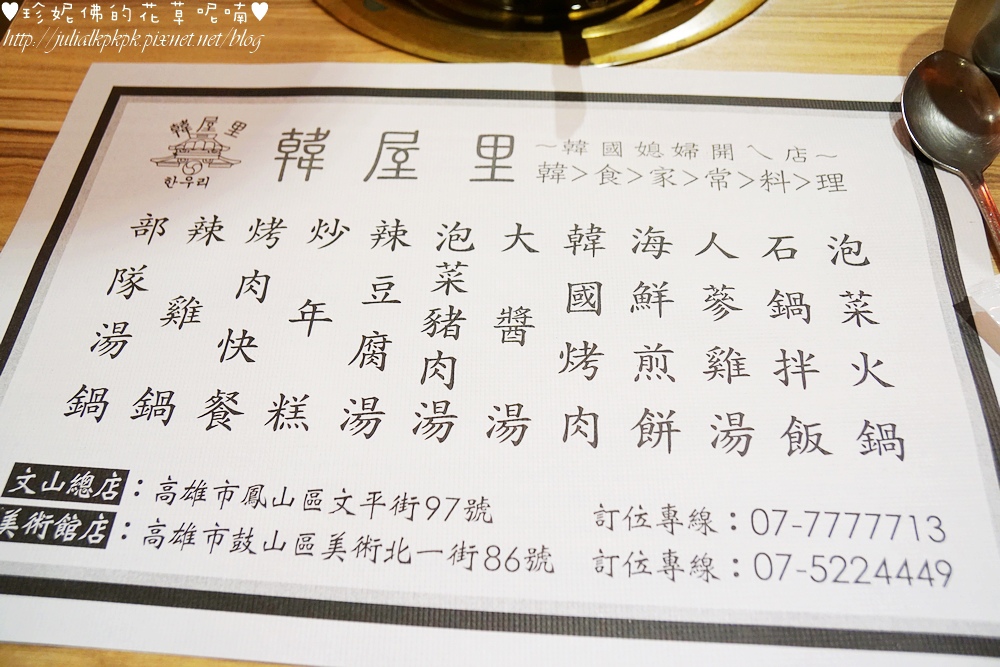 ♥珍妮佛的花草呢喃♥
http://julialkpkpk.pixnet.net/blog
韓屋里
한우리
韓屋里
~韓國媳婦開ㄟ店~
韓>食>家>常>料>理
泡菜火鍋
石鍋拌飯
人蔘雞湯
海鮮煎餅
韓國烤肉
大醬湯
泡菜豬肉湯
辣豆腐湯
炒年糕
烤肉快餐
辣雞鍋
部隊湯鍋
文山總店：高雄市鳳山區文平街97號
訂位專線：07-7777713
美術館店：高雄市鼓山區美術北一街86號
訂位專線：07-5224449